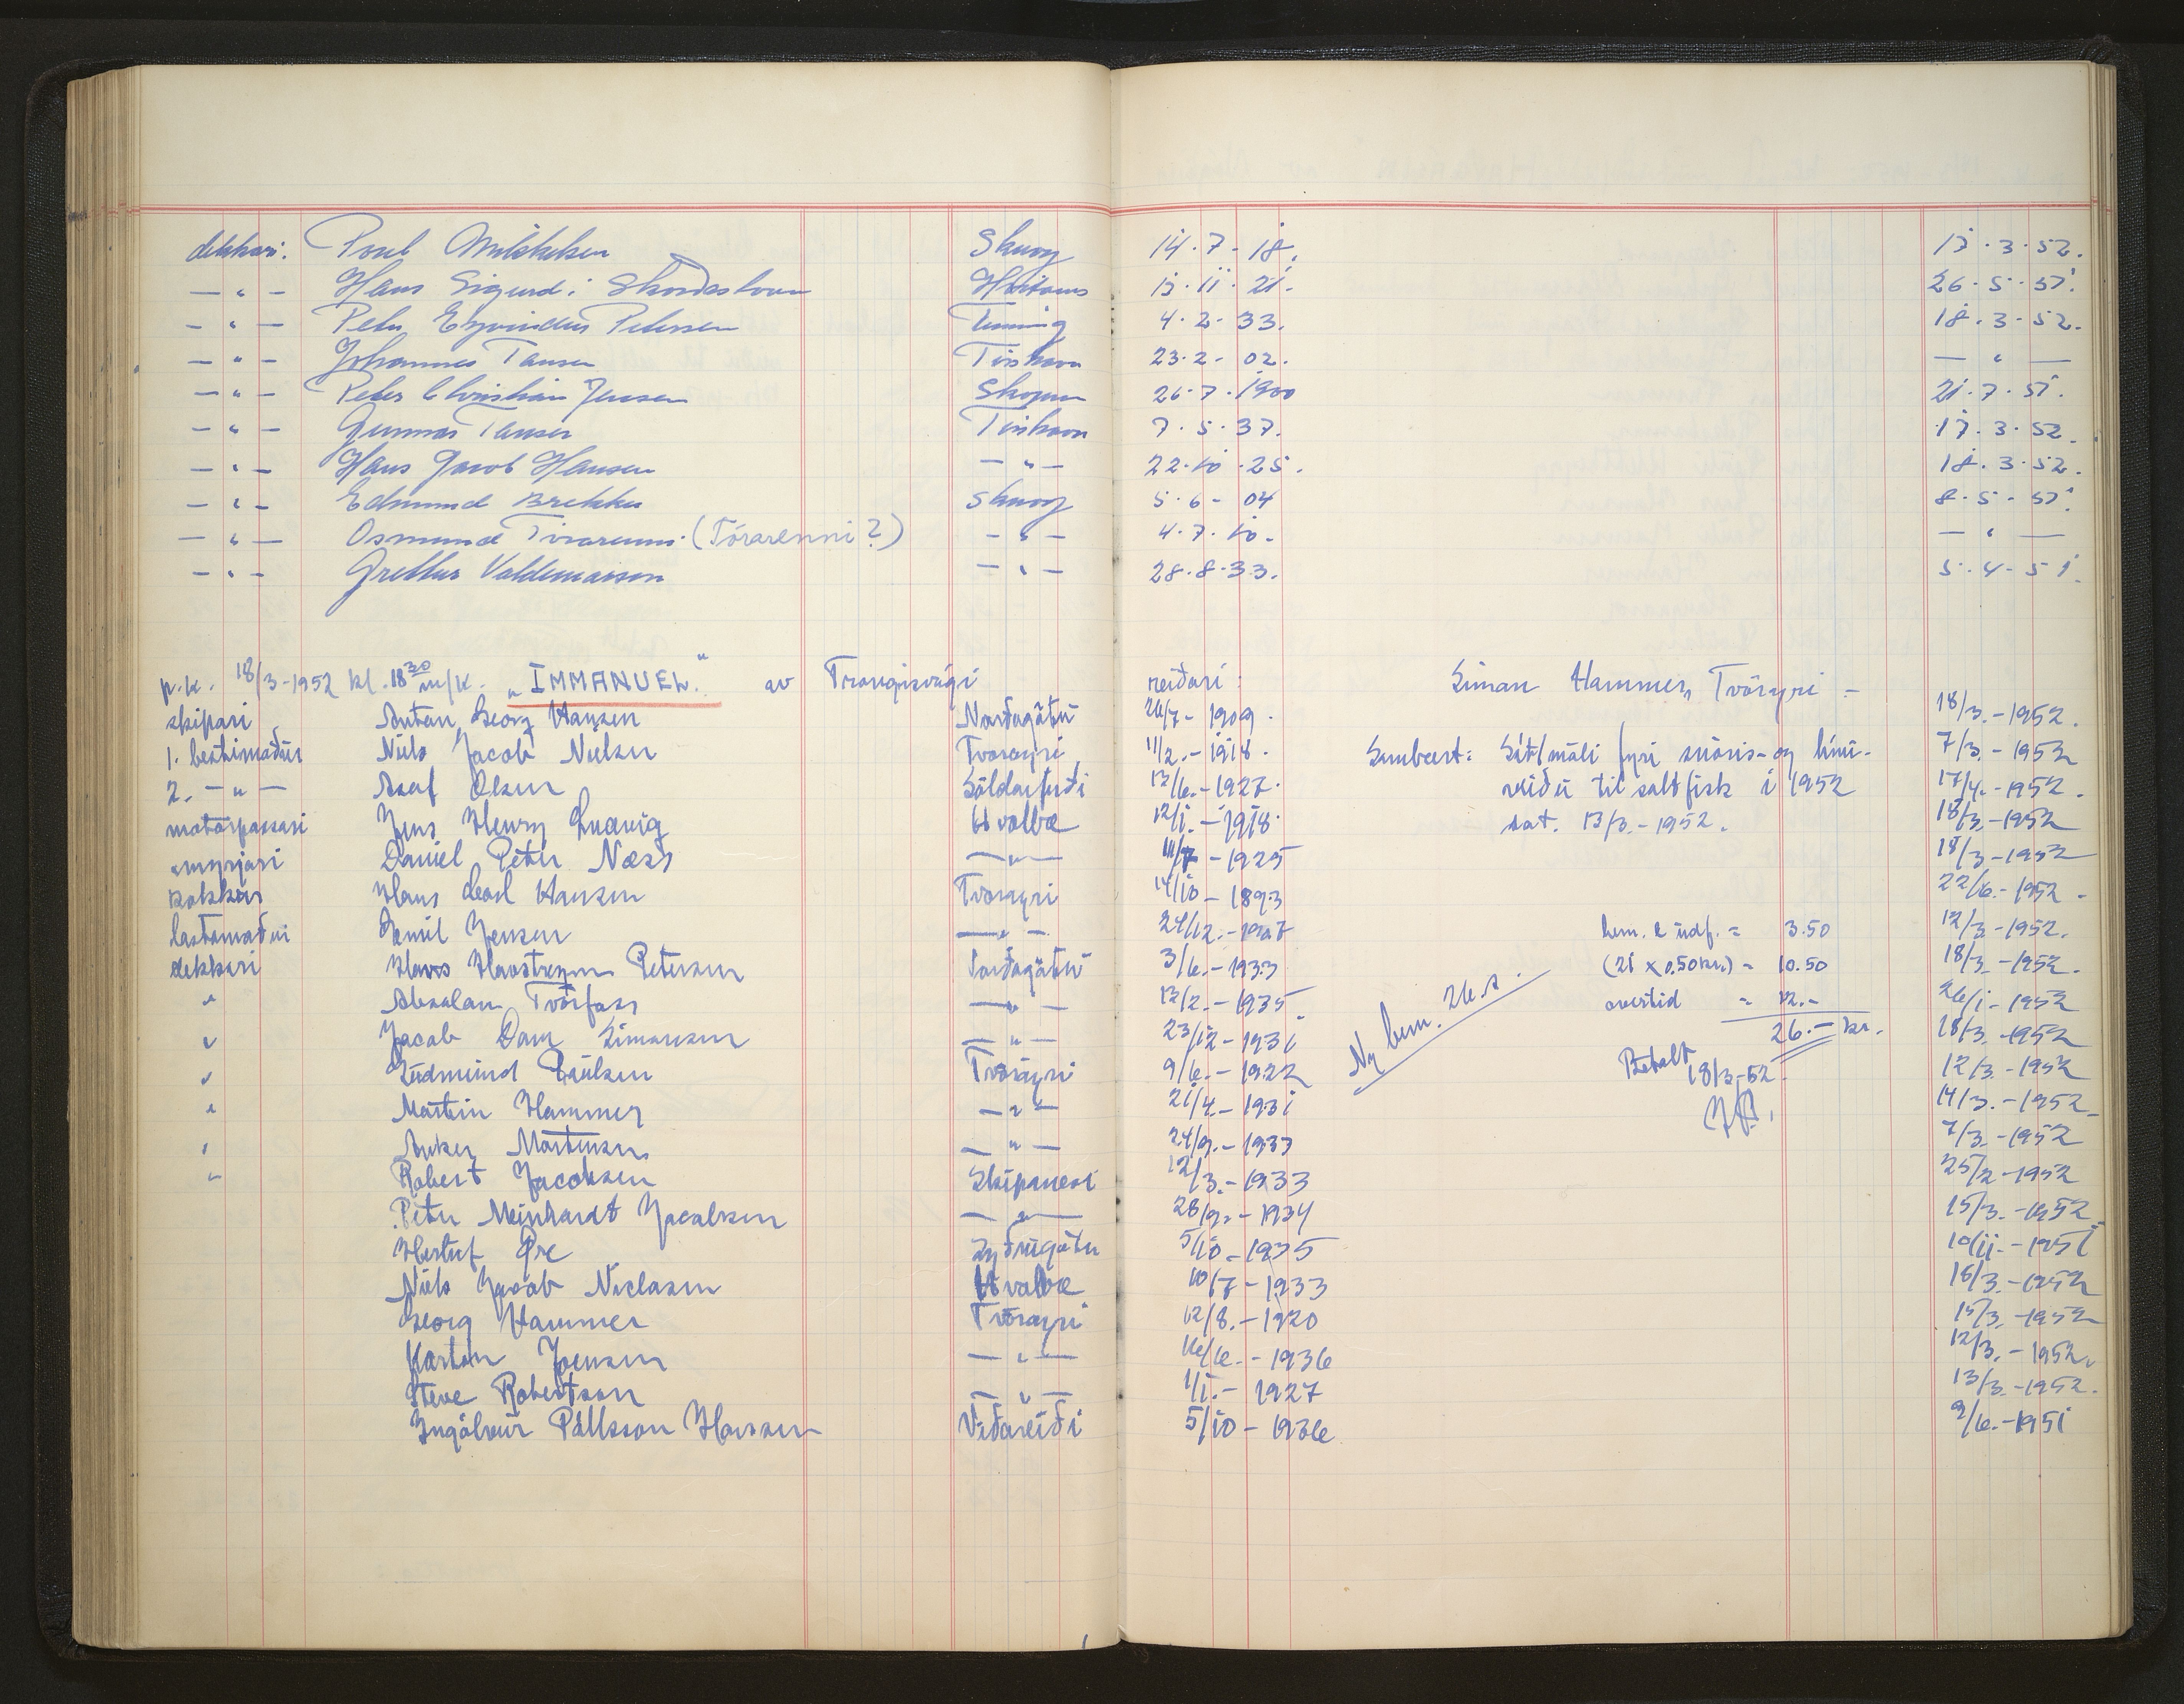 dekkari. Poul Mikkelsen Skuvoy 14.7-18. 17.3.52.
— " — Hans Sigurd i 13.11.21. 26.5.51.
— " — Petur Eyvindur Petersen 4.2-33. 18.3-52.
— " — Johannes Tausen Tórshavn 23.2-02. — " —
— " — Peter Christian Jensen Skopun 26.7.1900 21.7.51.
— " — Gunnar Tausen Tórshavn 7.5.37. 17.3.52.
— " — Hans Jacob Hansen — " — 22.10.25. 18.3.52.
— " — Edmund Brekku Skuvoy 5.6-04 8.5-51.
— " — Osmund (Tórarenni?) — " — 4.7.10. — " —
— " — Grettur Valdemarsen — " — 28.8.33. 5.4-51.
p.k. 18/3-1952 kl. 18³⁰ m/k. "IMMANUEL" av Trongisvági reiðari: Siman Hammer, Tvöroyri –
skipari Anton Georg Hansen Norðagötu 26/7-1909. 18/3.-1952.
1. bestimaður Niels Jacob Nielsen Tvöroyri 11/2.-1918. Sambært: Sáttmáli fyri snöris- og línu- 7/3.-1952
2. — " — Asaf Olsen Söldarfirði 13/6.-1927. veiðu til saltfisk í 1952 17/4.-1952.
motorpassari Jens Henry Ludvig Hvalbæ 12/1.-1918. dat. 13/3.-1952. 18/3.-1952
smyrjari Daniel Petur Næss — " — -1925 18/3.-1952
kokkur Hans Carl Hansen Tvöroyri 14/10-1893 22/6.-1952.
lastamaður Emil Jensen — " — 24/12.-1907 bem. & udf. = 3.50 12/3-1952.
dekkari Petersen Norðagötu 3/6.-1933 (21 x 0.50 kr.) = 10.50 18/3.-1952.
" Absalon Tvörfoss — " — 13/2.-1935 Ny bem. 26.s. overtid = 12.- 26/1-1952
" Jacob Dam Simonsen — " — 23/12-1931 26.- kr. 18/3.-1952
" Gudmund Poulsen Tvöroyri 9/6.-1922 Betalt 18/3-52. 12/3.-1952
" Martin Hammer — " — 21/4.-1931 14/3.-1952
" Anker Mortensen — " — 24/9.-1933 7/3.-1952
" Robert Jacobsen Skipanesi 12/3.-1933 25/2-1952
Petur Meinhardt Jacobsen — " — 28/9.-1934 15/3.-1952
Herluf Øre Syðrugötu 5/10-1935 10/11.-1951
Niels Jacob Niclasen Hvalbæ 10/7-1933 16/3.-1952
Georg Hammer Tvöroyri 12/8.-1920 15/3.-1952
Karton Joensen — " — 16/6.-1936 12/3.-1952.
Steve Robertson — " — 1/1.-1927 13/3.-1952.
Ingálvur Pállsson Hansen Viðareiði 5/10-1936 9/6.-1951